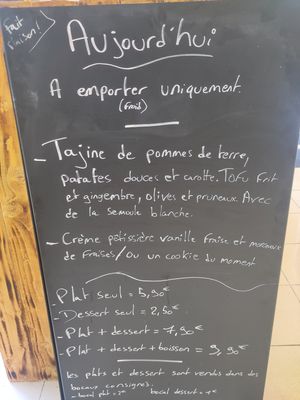 fait
maison !
Aujourd'hui
A emporter uniquement.
(froid)
- Tajine de pommes de terre,
patates douces et carotte. Tofu frit
et gingembre, olives et pruneaux. Avec
de la semoule blanche.
- Crème pâtissière vanille fraise et morceaux
de fraises / ou un cookie du moment
- Plat seul = 5,90€
- Dessert seul = 2,50€
- Plat + dessert = 7,90€
- Plat + dessert + boisson = 9,90€
les plats et dessert sont vendus dans des
bocaux consignés.
- bocal plat = 2€ bocal dessert = 1€